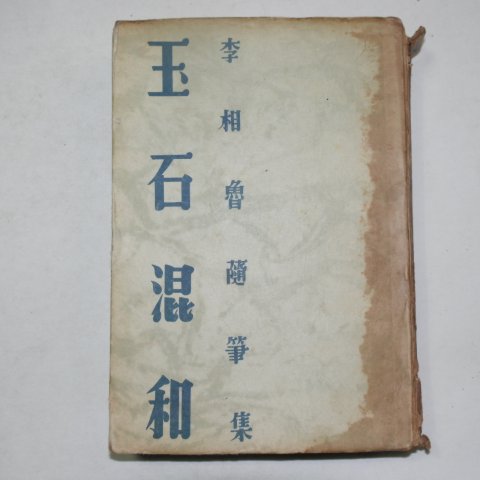 李相魯隨筆集
玉石混和